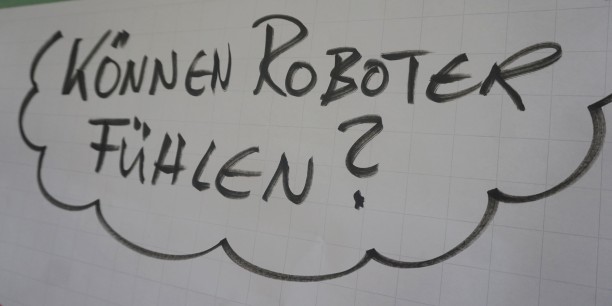 KÖNNEN ROBOTER
FÜHLEN?